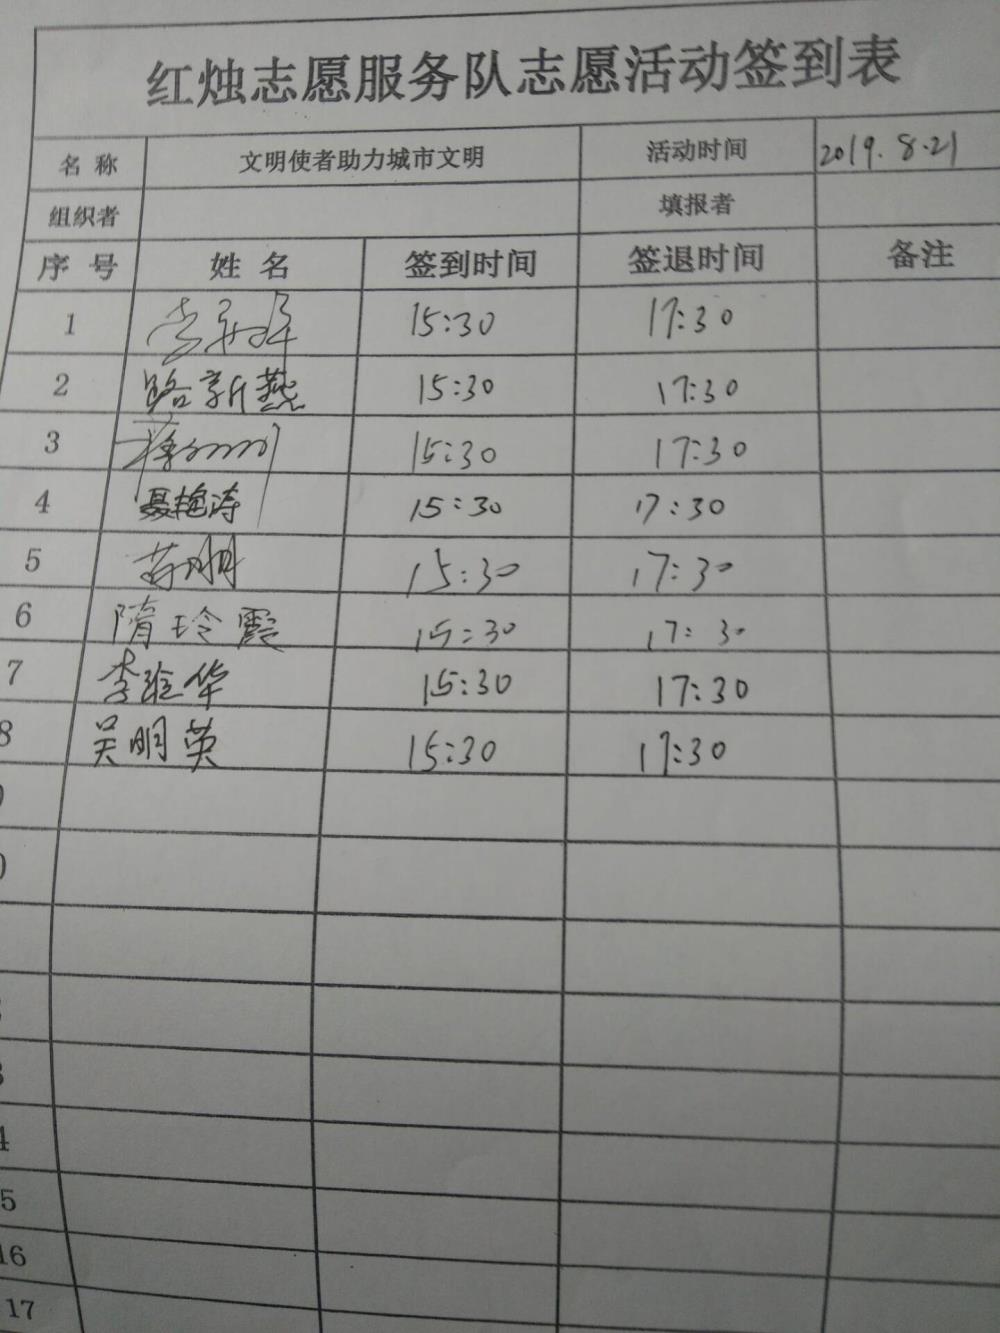 红烛志愿服务队志愿活动签到表
名 称 文明使者助力城市文明 活动时间 2019.8.21
组织者 填报者
序 号 姓 名 签到时间 签退时间 备注
1 15:30 17:30
2 路新燕 15:30 17:30
3 15:30 17:30
4 聂艳涛 15:30 17:30
5 15:30 17:30
6 隋玲霞 15:30 17:30
7 李 华 15:30 17:30
8 吴明英 15:30 17:30
16
17